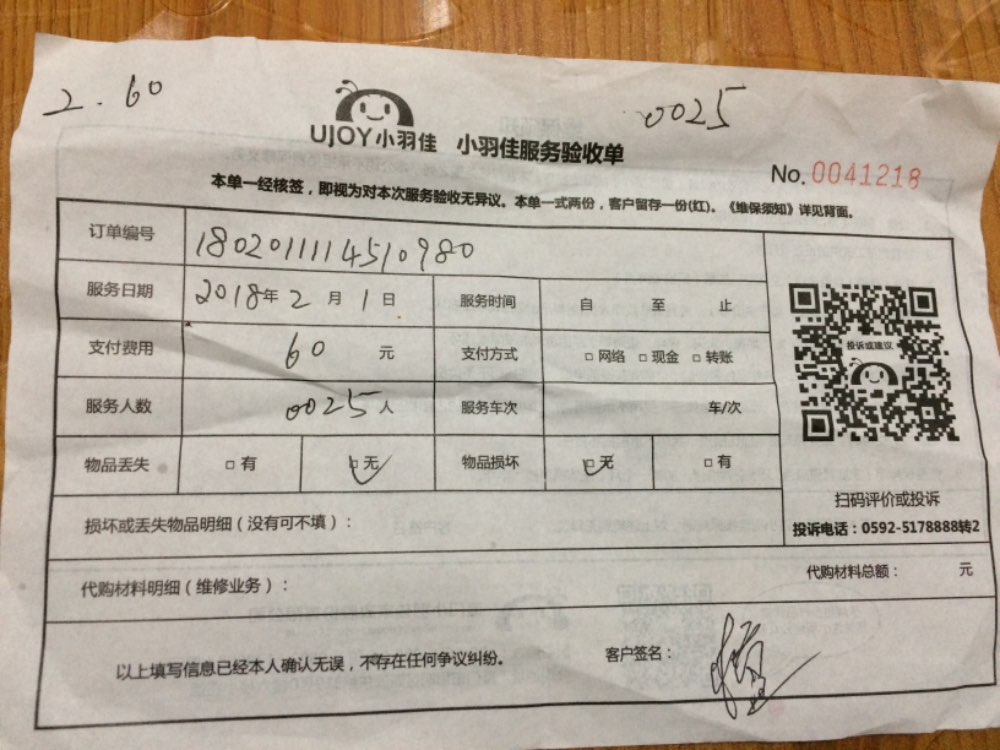 2.60
0025
UJOY小羽佳 小羽佳服务验收单
No.0041218
本单一经核签，即视为对本次服务验收无异议。本单一式两份，客户留存一份(红)。《维保须知》详见背面。
订单编号 1802011114510980
服务日期 2018年2月1日 服务时间 自 至 止
投诉或建议
支付费用 60 元 支付方式 □网络 □现金 □转账
服务人数 0025人 服务车次 车/次
物品丢失 □有 □无 物品损坏 □无 □有
扫码评价或投诉
损坏或丢失物品明细（没有可不填）：
投诉电话：0592-5178888转2
代购材料明细（维修业务）： 代购材料总额： 元
以上填写信息已经本人确认无误，不存在任何争议纠纷。 客户签名：